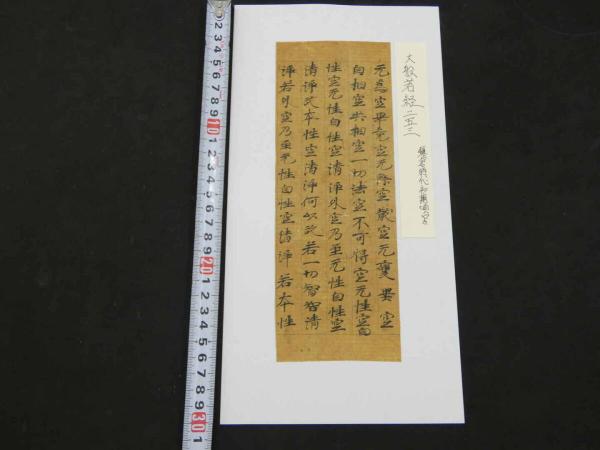 大般若経二五三
鎌倉時代初期
无為空畢竟空无際空散空无變異空
自相空共相空一切法空不可得空无性空自
性空无性自性空清淨外空乃至无性自性空
清淨故本性空清淨何以故若一切智智清
淨若外空乃至无性自性空清淨若本性
2 3 4 5 6 7 8 9 10 1 2 3 4 5 6 7 8 9 20 1 2 3 4 5 6 7 8 9 30 1